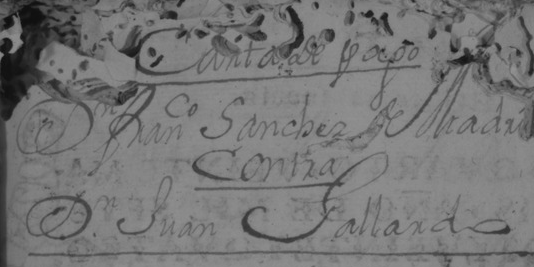 Carta de pago
Dn. Franco. Sanchez de Madri
Contra
Dn. Juan Gallardo